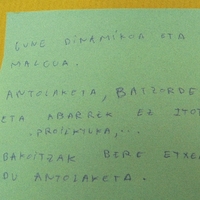 GUNE DINAMIKOA ETA
MALGUA.
ANTOLAKETA, BATZORDE
ETA ABARREK EZ ITO
PROIEKTUA,...
BAKOITZAK BERE ETXEA
DU ANTOLAKETA.